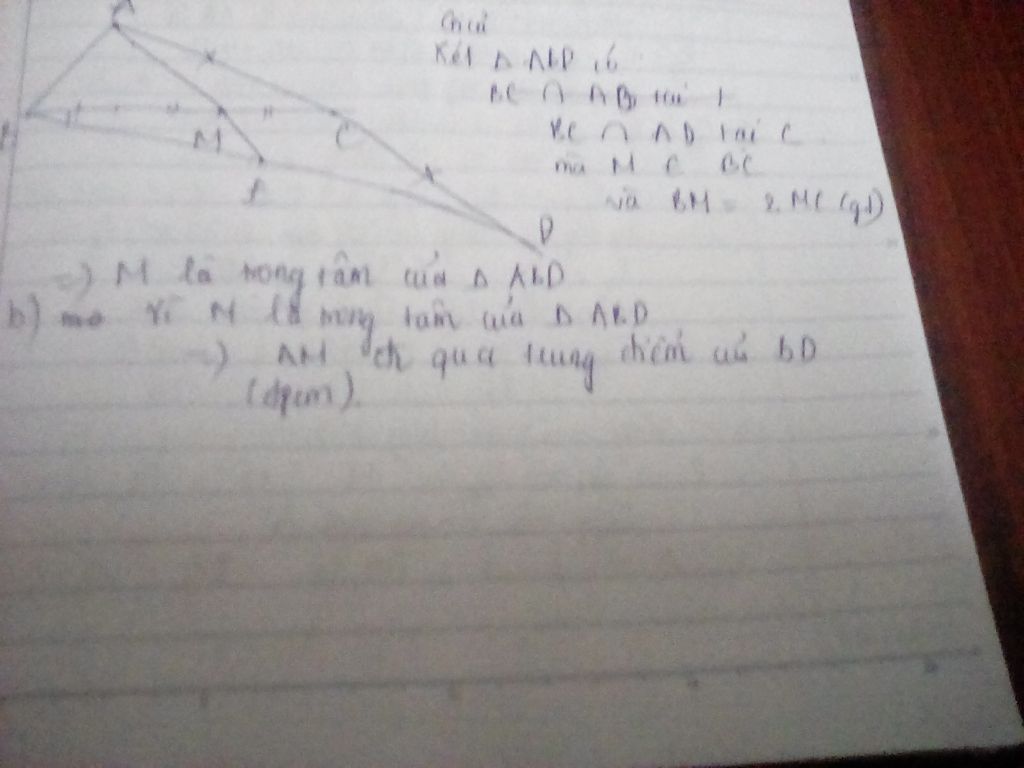 A
B
M
C
E
D
Xét Δ ABD có
BC ∩ AB tại
BC ∩ AD tại C
mà M ∈ BC
và BM = 2 MC (gt)
=) M là trọng tâm của Δ ABD
b) vì M là trọng tâm của Δ ABD
=) AM đi qua trung điểm của BD
(đpcm).